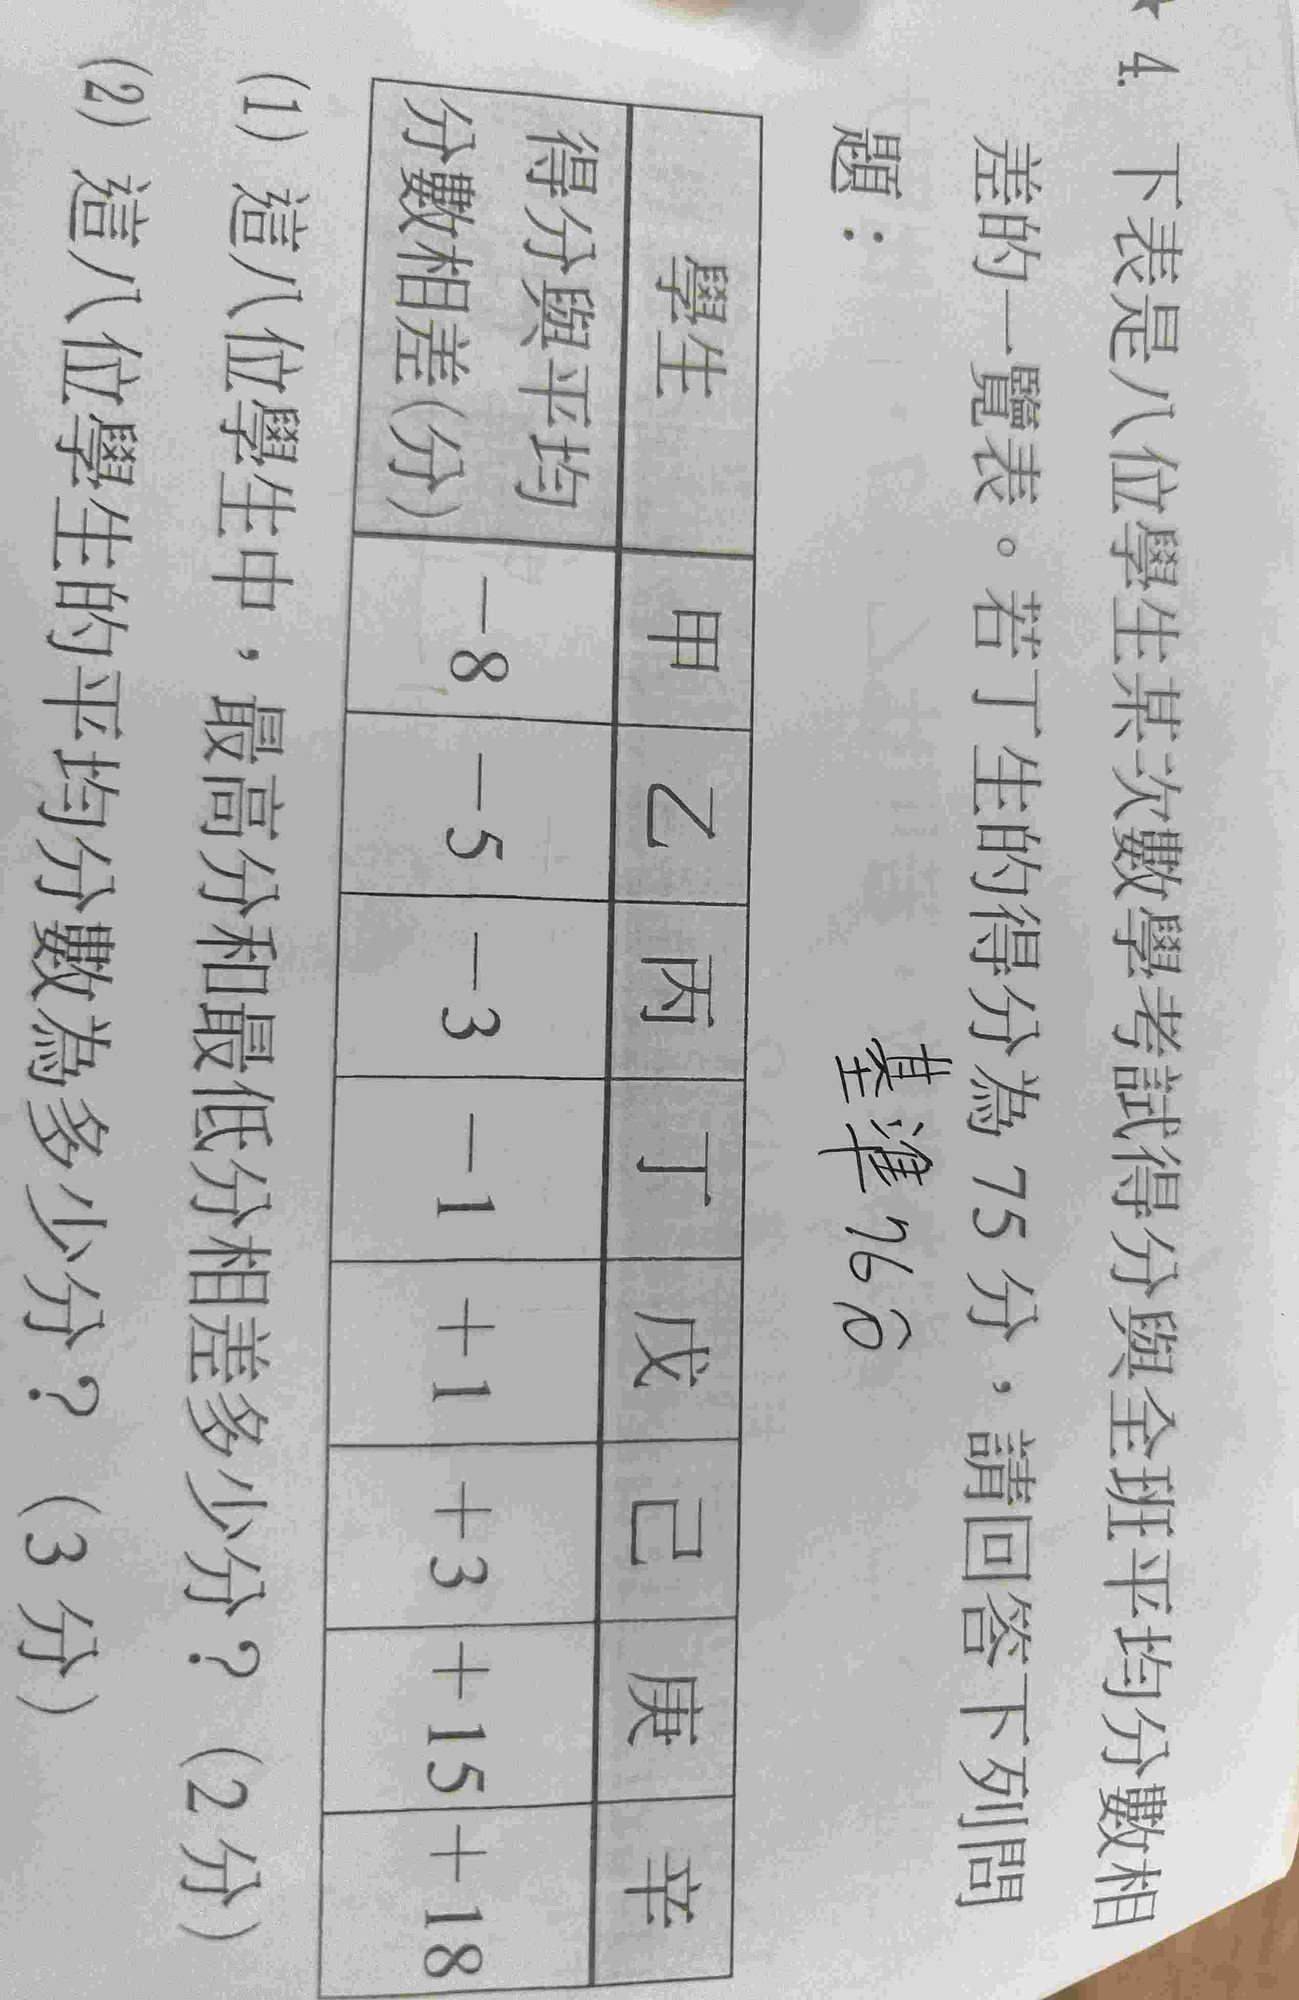 ★ 4. 下表是八位學生某次數學考試得分與全班平均分數相
差的一覽表。若丁生的得分為 75 分，請回答下列問
題：
基準 76分
學生 甲 乙 丙 丁 戊 己 庚 辛
得分與平均
分數相差(分) －8 －5 －3 －1 ＋1 ＋3 ＋15 ＋18
(1) 這八位學生中，最高分和最低分相差多少分？（2 分）
(2) 這八位學生的平均分數為多少分？（3 分）